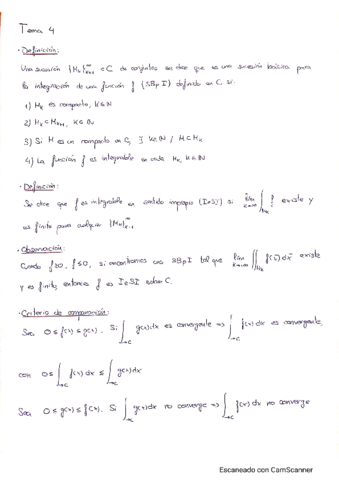 Tema 4
· Definición:
Una sucesión {M_k}_{k=1}^∞ ⊂ C de conjuntos se dice que es una sucesión básica para
la integración de una función f (SBpI) definida en C, si:
1) M_k es compacto, k∈ℕ
2) M_k ⊂ M_{k+1}, k∈ℕ
3) Si M es un compacto en C, ∃ k∈ℕ / M⊂M_k
4) La función f es integrable en cada M_k, k∈ℕ
· Definición:
Se dice que f es integrable en sentido impropio (IeSI) si lim_{k→∞} ∫_{M_k} f existe y
es finito para cualquier {M_k}_{k=1}^∞
· Observación:
Cuando f≥0, f≤0, si encontramos una SBpI tal que lim_{k→∞} ∬_{M_k} f(x̄) dx̄ existe
y es finito, entonces f es IeSI sobre C.
· Criterio de comparación:
Sea 0 ≤ f(x) ≤ g(x). Si ∫_{→C} g(x)dx es convergente ⇒ ∫_{→C} f(x)dx es convergente,
con 0 ≤ ∫_{→C} f(x)dx ≤ ∫_{→C} g(x)dx
Sea 0 ≤ g(x) ≤ f(x). Si ∫_{→C} g(x)dx no converge ⇒ ∫_{→C} f(x)dx no converge
Escaneado con CamScanner